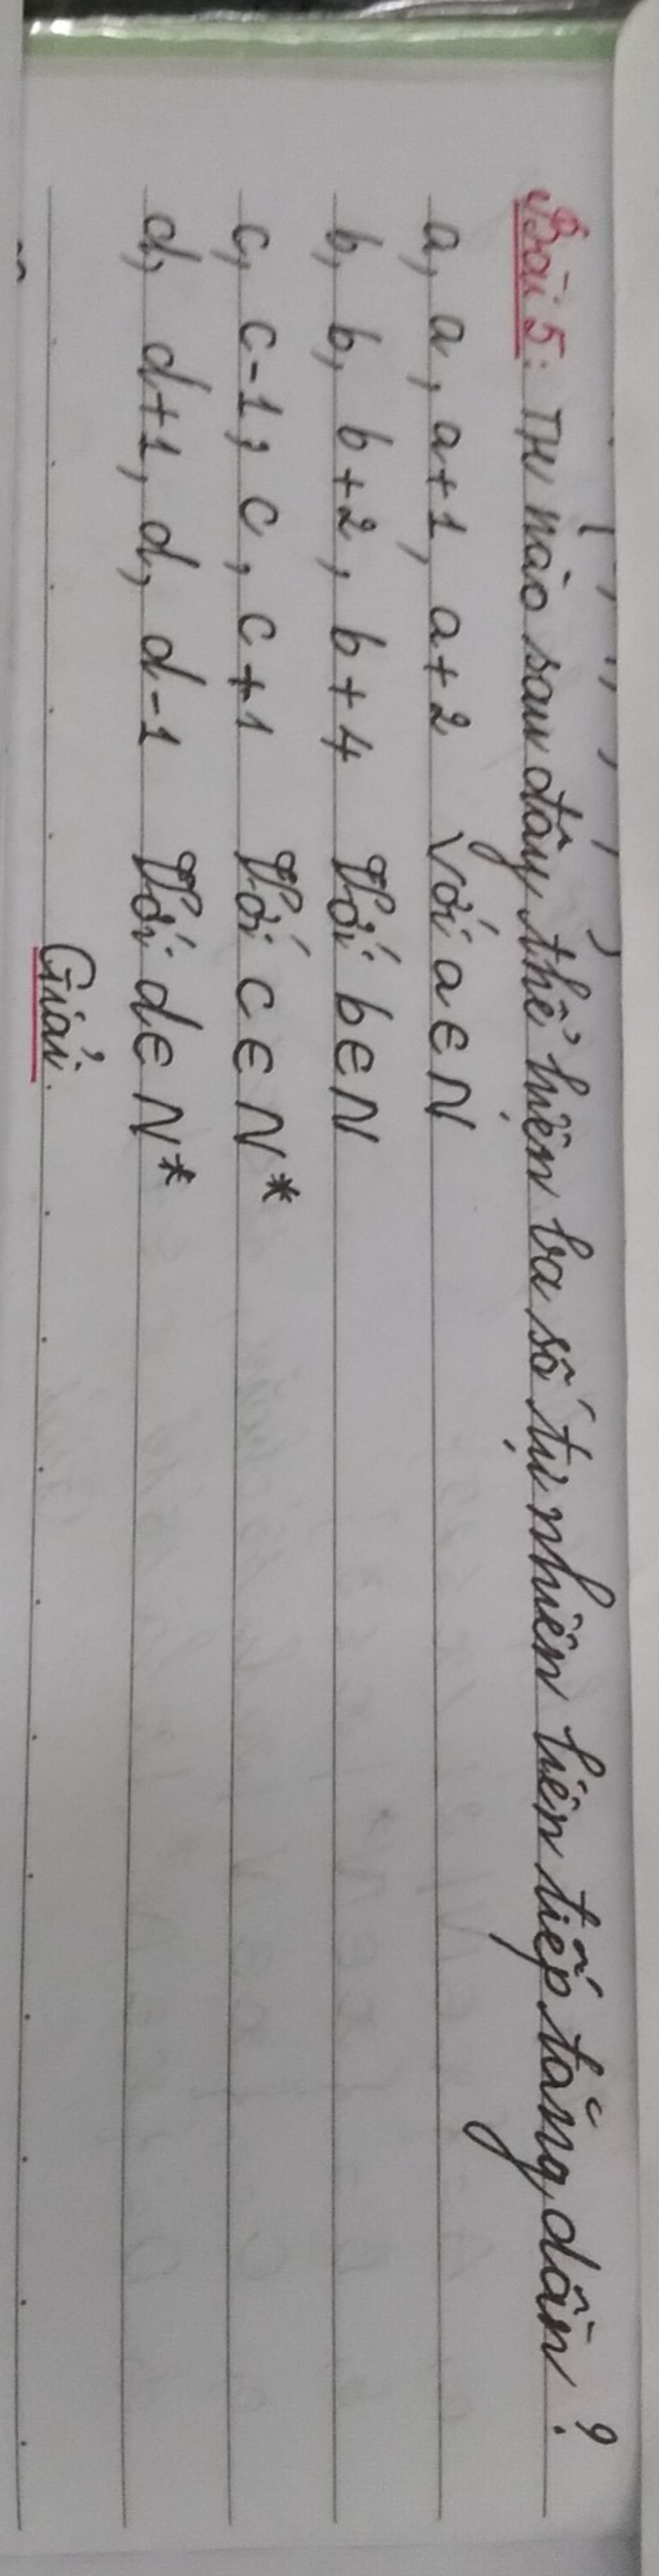 Bài 5: TH nào sau đây thể hiện ba số tự nhiên liên tiếp tăng dần?
a, a, a+1, a+2 Với a ∈ N
b, b, b+2, b+4 Với b ∈ N
c, c-1; c, c+1 Với c ∈ N*
d, d+1, d, d-1 Với d ∈ N*
Giải.